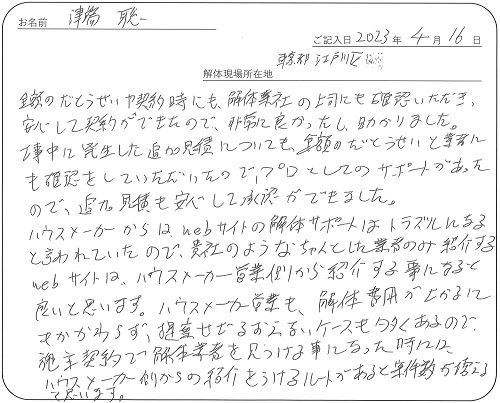 お名前 津崎 聡一
ご記入日 2023年 4月 16日
東京都 江戸川区
解体現場所在地
金額のだとうせいや契約時にも、解体業社の上司にも確認いただき、
安心して契約ができたので、非常に良かったし、助かりました。
工事中に発生した追加見積についても、金額のだとうせいと業者に
も確認をしていただいたので、プロとしてのサポートがあった
ので、追加見積も安心して承認ができました。
ハウスメーカーからは webサイトの解体サポートはトラブルになる
と言われていたので、貴社のようなちゃんとした業者のみ紹介する
webサイトは、ハウスメーカー営業側から紹介する事になると
良いと思います。ハウスメーカー営業も、解体費用が上がるに
もかかわらず、提案せざるおえないケースも多くあるので、
施主契約で解体業者を見つける事になった時には、
ハウスメーカー側からの紹介をうけるルートがあると案件数が増える
と思います。